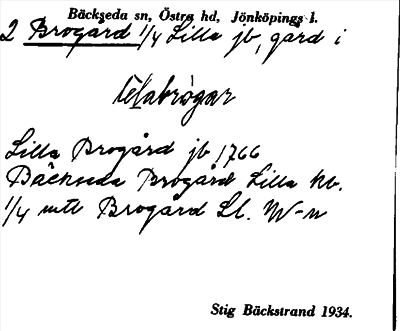 Bäckseda sn, Östra hd, Jönköpings l.
2 Brogård 1/4 Lilla jb, gård i
Lilla Brogård jb 1766
Bäckseda Brogård Lilla kb.
1/4 mtl Brogård Ll. NV-n
Stig Bäckstrand 1934.